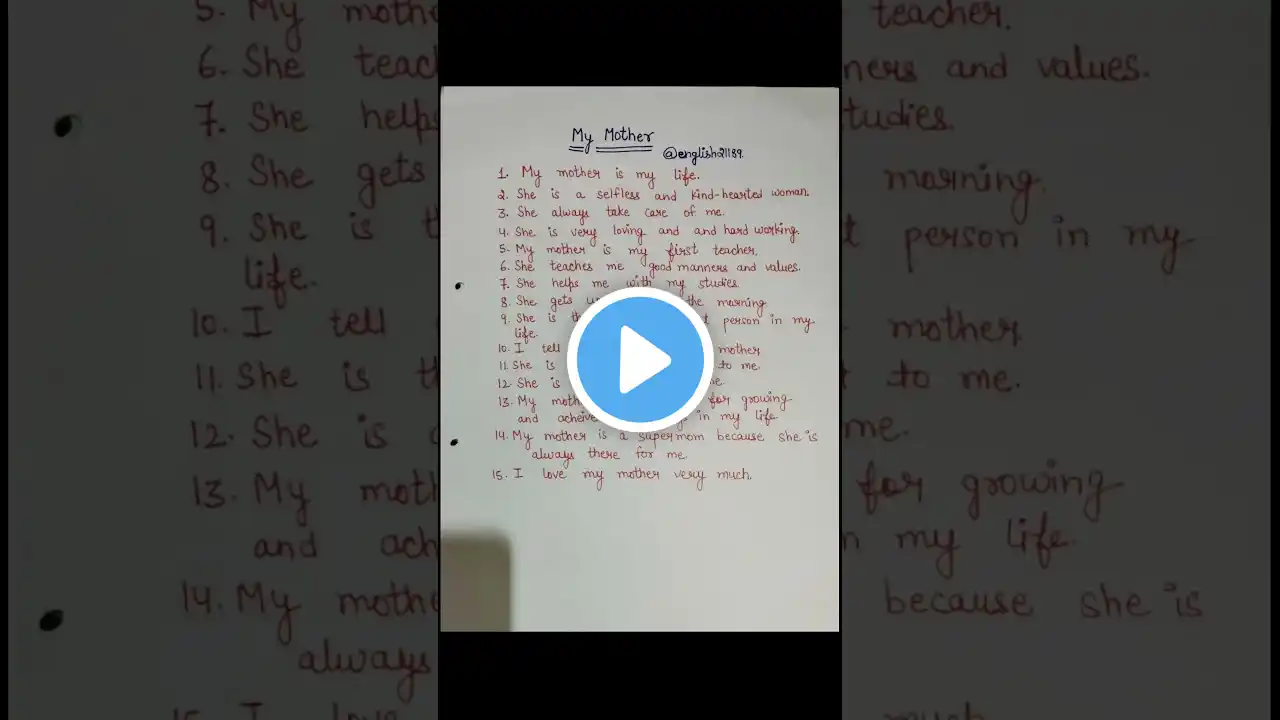 My Mother
@english21189.
1. My mother is my life.
2. She is a selfless and kind-hearted woman.
3. She always take care of me.
4. She is very loving and and hard working.
5. My mother is my first teacher.
6. She teaches me good manners and values.
7. She helps me with my studies.
8. She gets the morning
9. She is person in my
life.
10. I tell mother
11. She is to me.
12. She is me.
13. My for growing
and in my life
14. My mother is a supermom because she is
always there for me.
15. I love my mother very much.